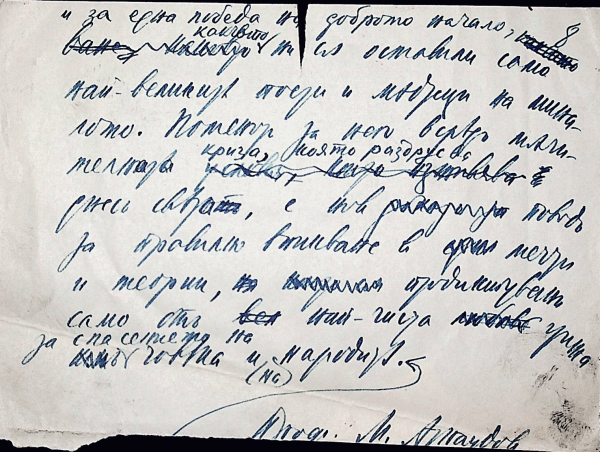 и за една победа на доброто начало, 8
каквито ни сѫ оставили само
най-великитѣ поети и мѫдреци на мина-
лото. Поменът за него всрѣдъ мѫчи-
криза, която раздрусва
телната
днесь свѣта, е новъ поводъ
за правилно вникване в мечти
и теории, продиктувани
само отъ най-чиста грижа
за спасението на
човѣка и народитѣ.
(на)
Проф. М. Арнаудов